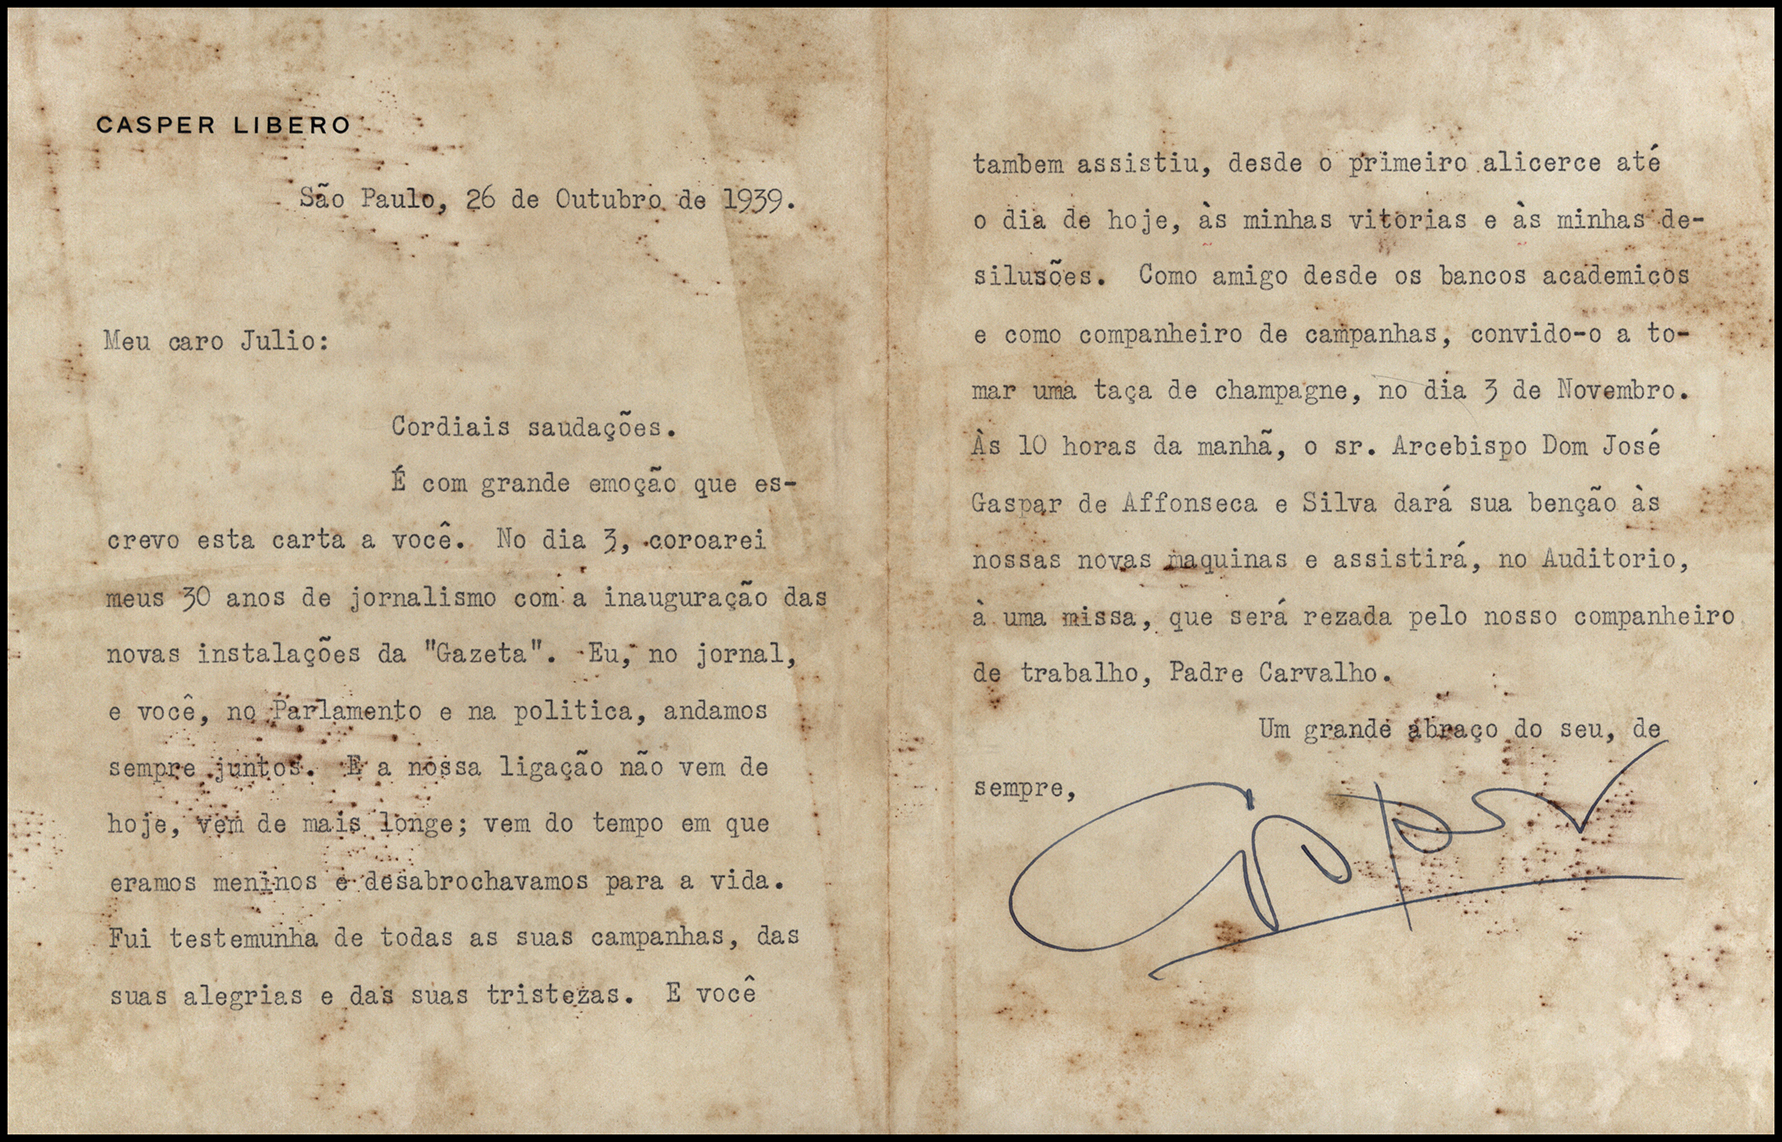 CASPER LIBERO
São Paulo, 26 de Outubro de 1939.
Meu caro Julio:
Cordiais saudações.
É com grande emoção que es-
crevo esta carta a você. No dia 3, coroarei
meus 30 anos de jornalismo com a inauguração das
novas instalações da "Gazeta". Eu, no jornal,
e você, no Parlamento e na politica, andamos
sempre juntos. E a nossa ligação não vem de
hoje, vem de mais longe; vem do tempo em que
eramos meninos e desabrochavamos para a vida.
Fui testemunha de todas as suas campanhas, das
suas alegrias e das suas tristezas. E você
tambem assistiu, desde o primeiro alicerce até
o dia de hoje, às minhas vitorias e às minhas de-
silusões. Como amigo desde os bancos academicos
e como companheiro de campanhas, convido-o a to-
mar uma taça de champagne, no dia 3 de Novembro.
Às 10 horas da manhã, o sr. Arcebispo Dom José
Gaspar de Affonseca e Silva dará sua benção às
nossas novas maquinas e assistirá, no Auditorio,
à uma missa, que será rezada pelo nosso companheiro
de trabalho, Padre Carvalho.
Um grande abraço do seu, de
sempre,
Casper